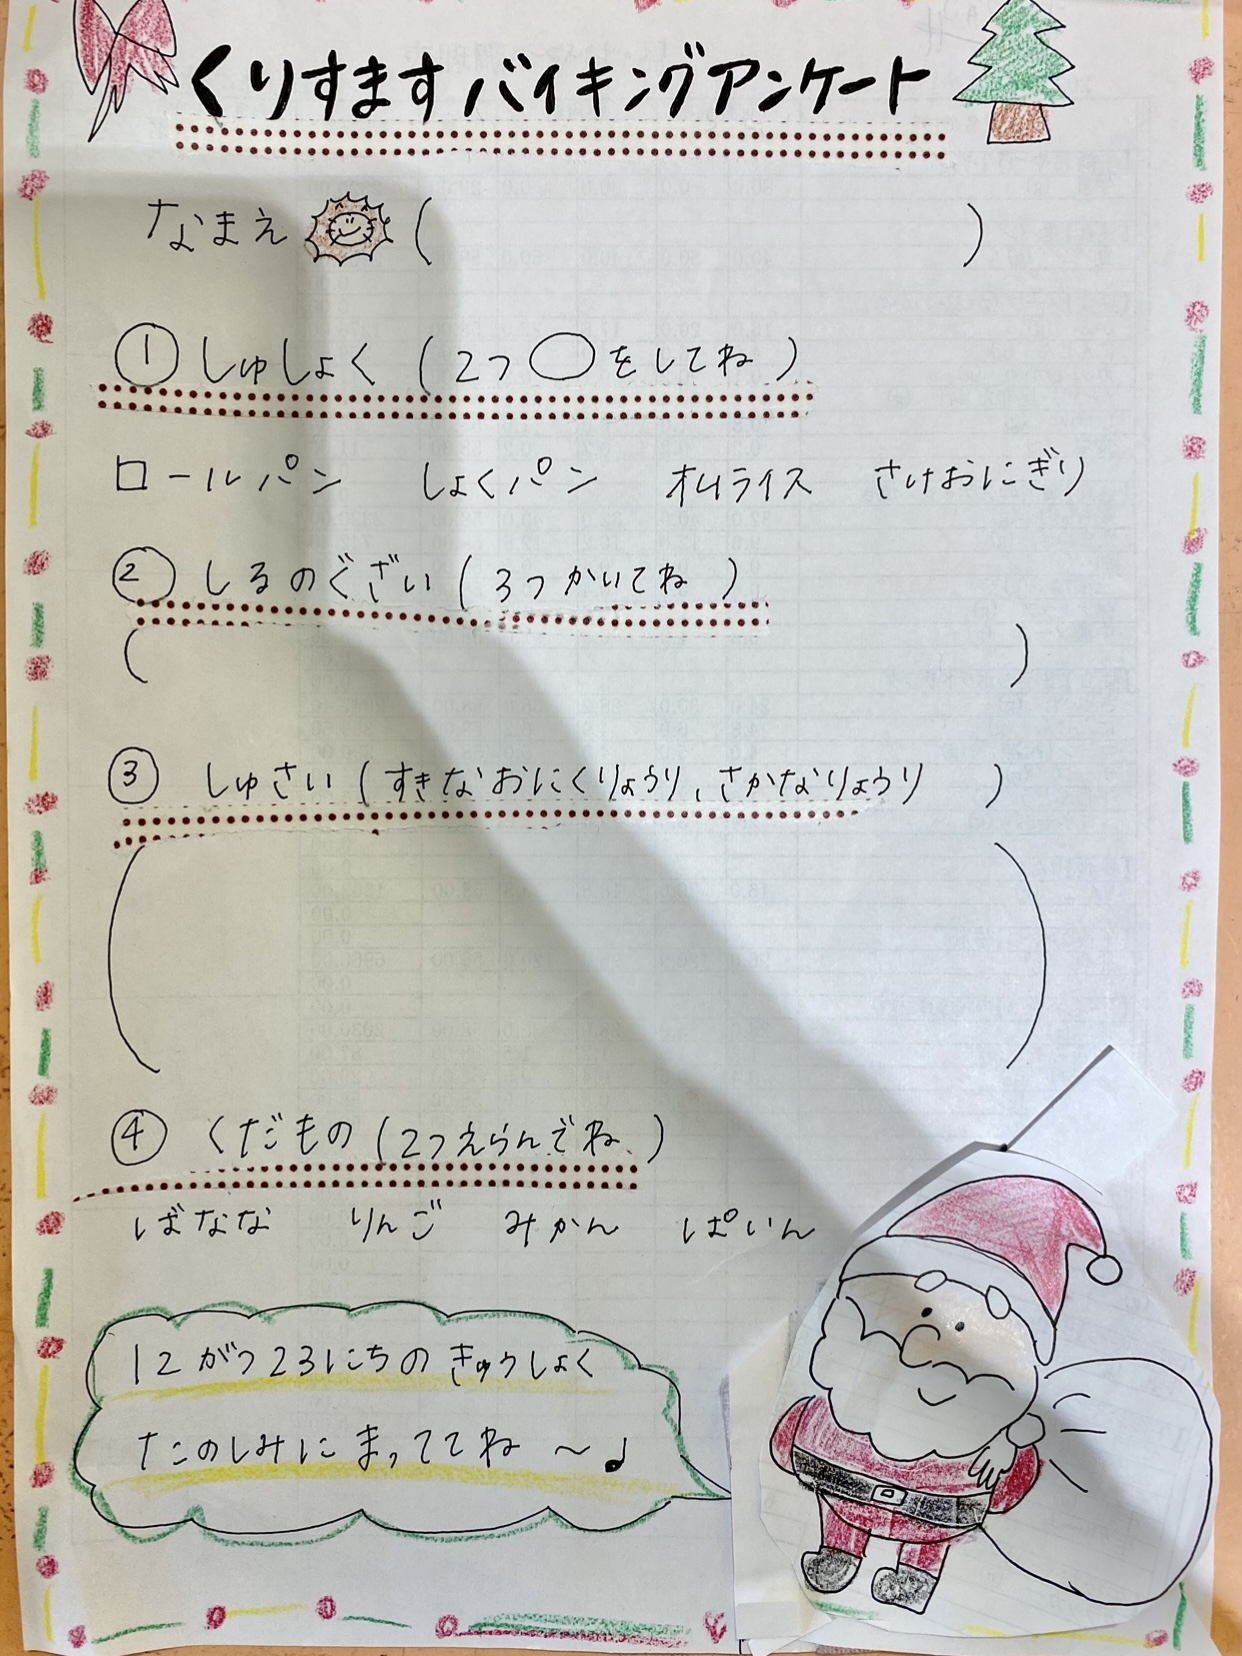 くりすますバイキングアンケート
なまえ ( )
① しゅしょく (2つ○をしてね)
ロールパン しょくパン オムライス さけおにぎり
② しるのぐざい (3つかいてね)
( )
③ しゅさい (すきなおにくりょうり、さかなりょうり )
( )
④ くだもの (2つえらんでね)
ばなな りんご みかん ぱいん
12がつ23にちのきゅうしょく
たのしみにまっててね〜♩